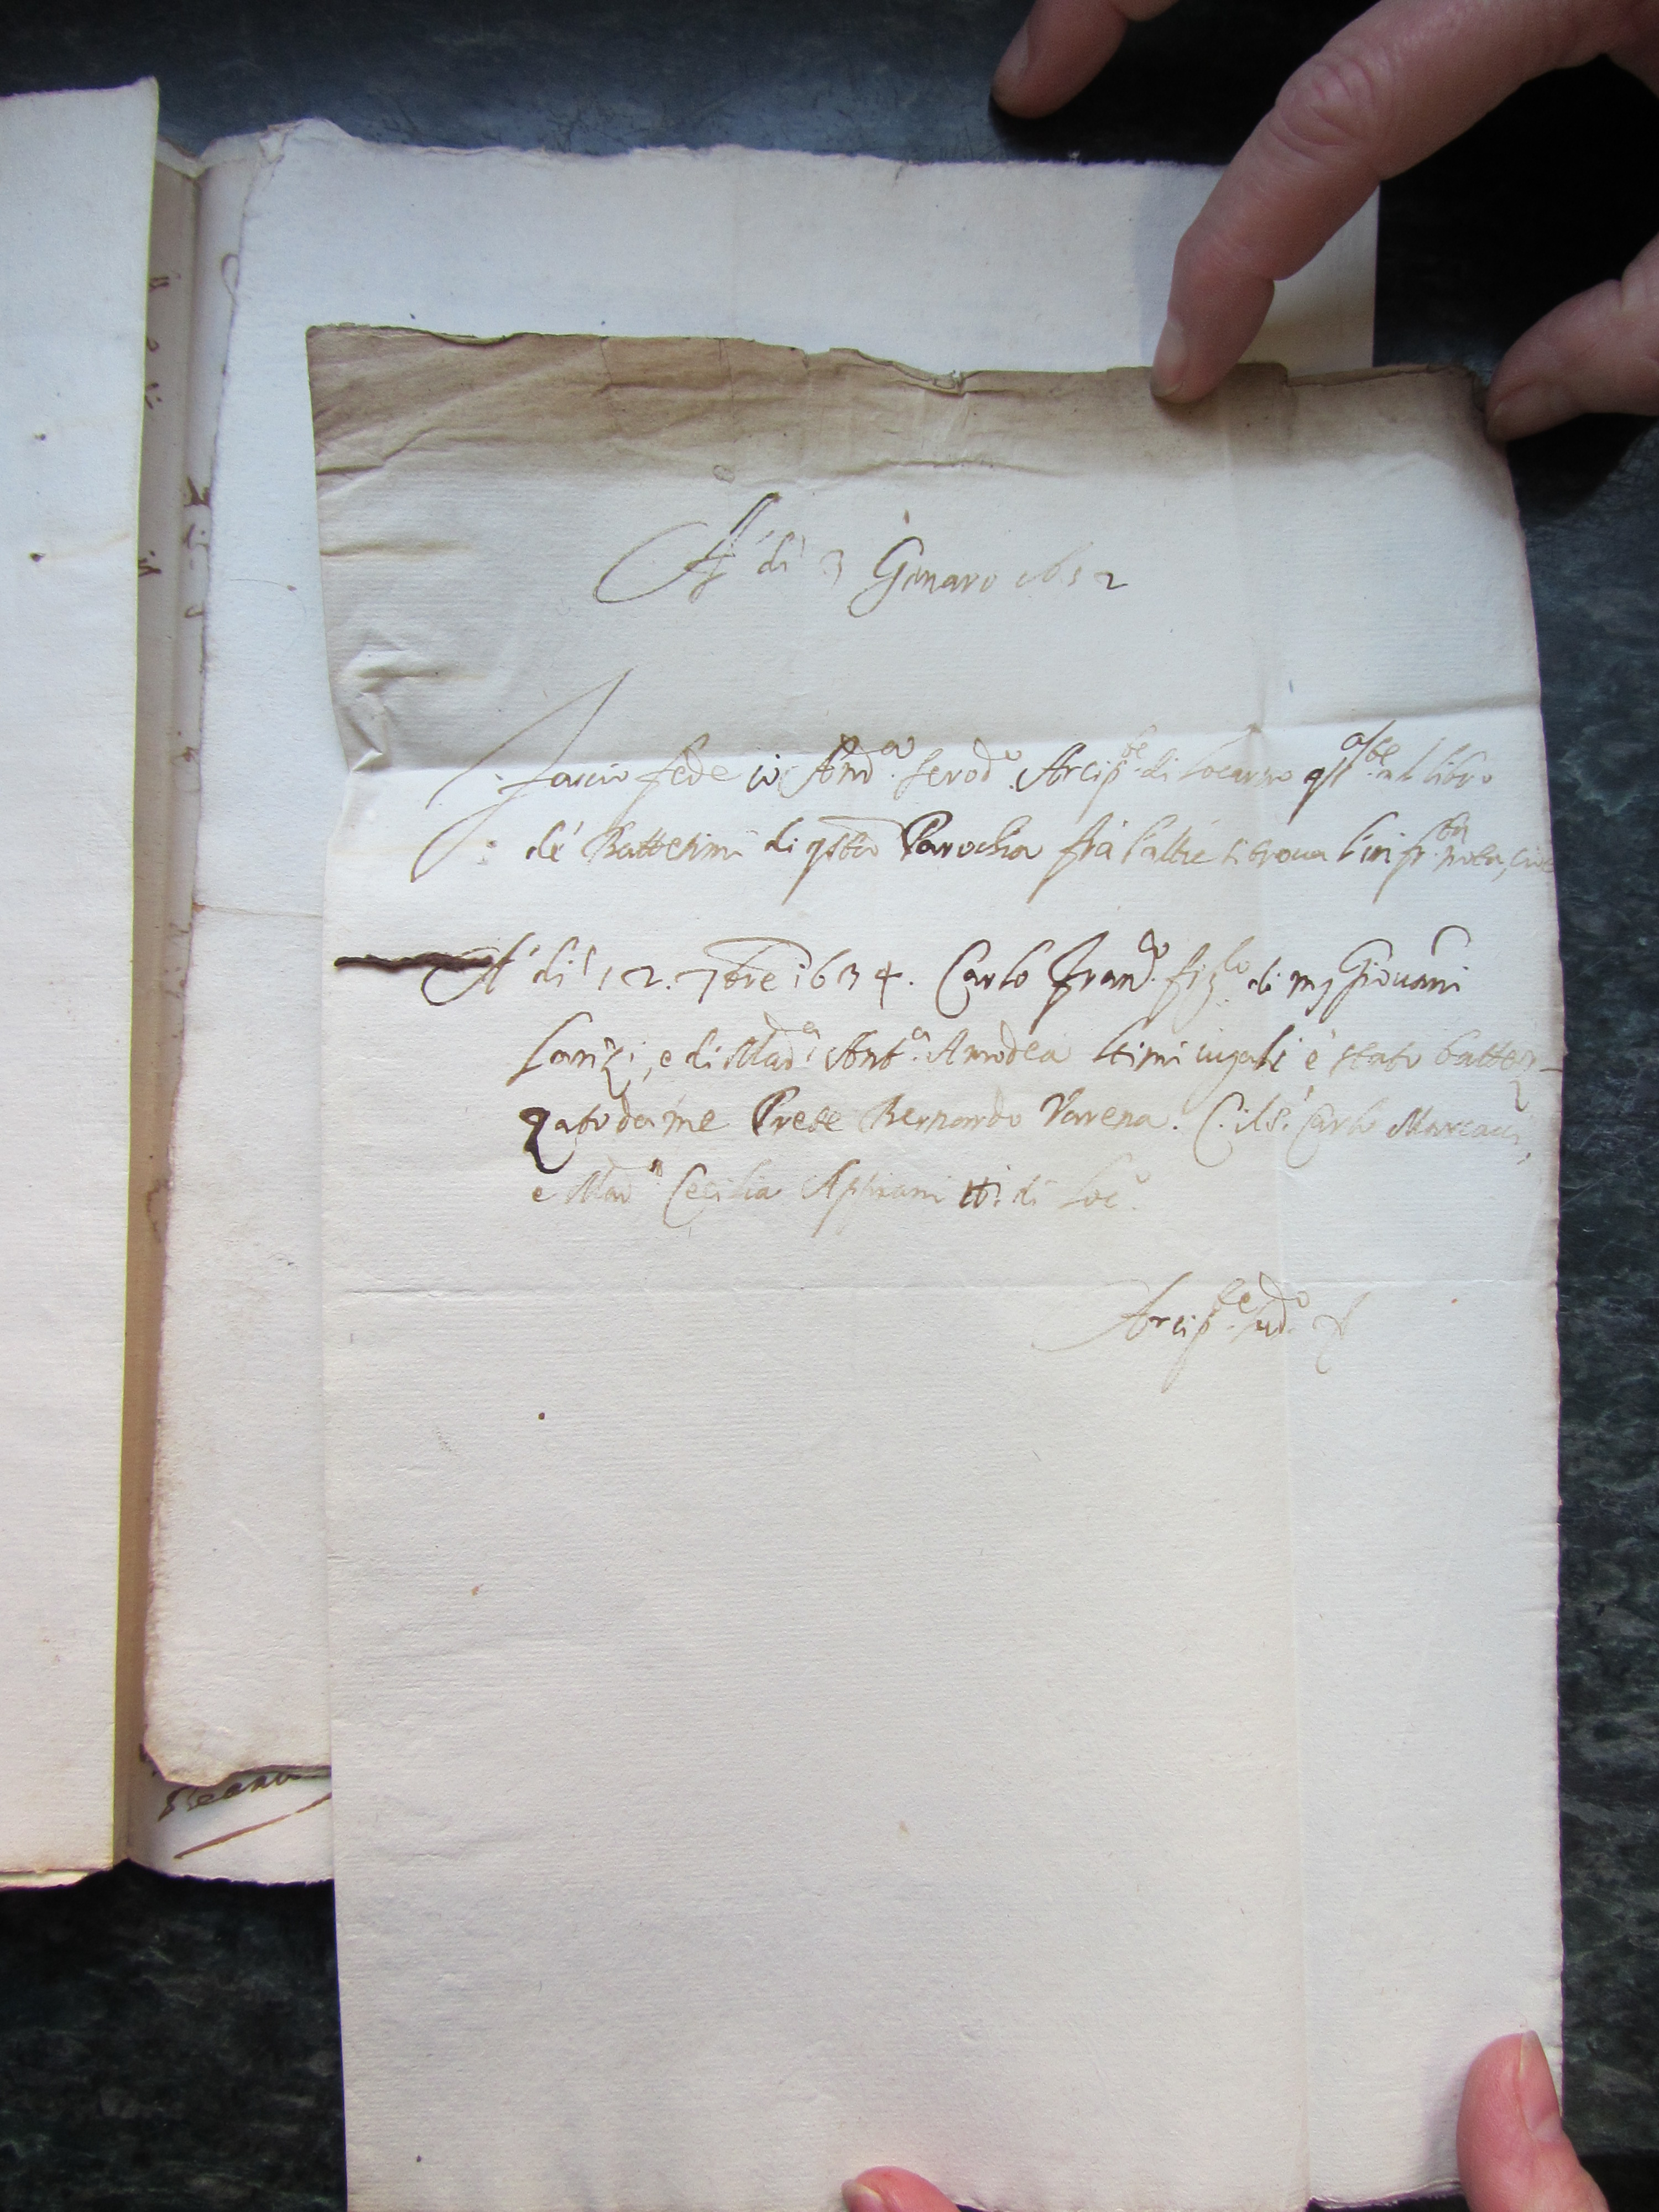 A' di 3 Genaro 1652
Faccio fede io And.a Serod.o Arcip.te di Locarno qll.te al libro
dè Battesimi di qsta Parochia frà l'altre si trova l'infr.ta nota, cioè
A' di 12. 7bre 1634. Carlo Fran.co figlo di mg Giovāni
Lanzi, e di Mad.a Ant.a Amodea ttimi iugali è stato battez-
zato da me Prete Bernardo Varena. C. il S.r Carlo Marcacci,
e Mad.a Cecilia Appiani tti di Loc.o
Arcip.te sud.o